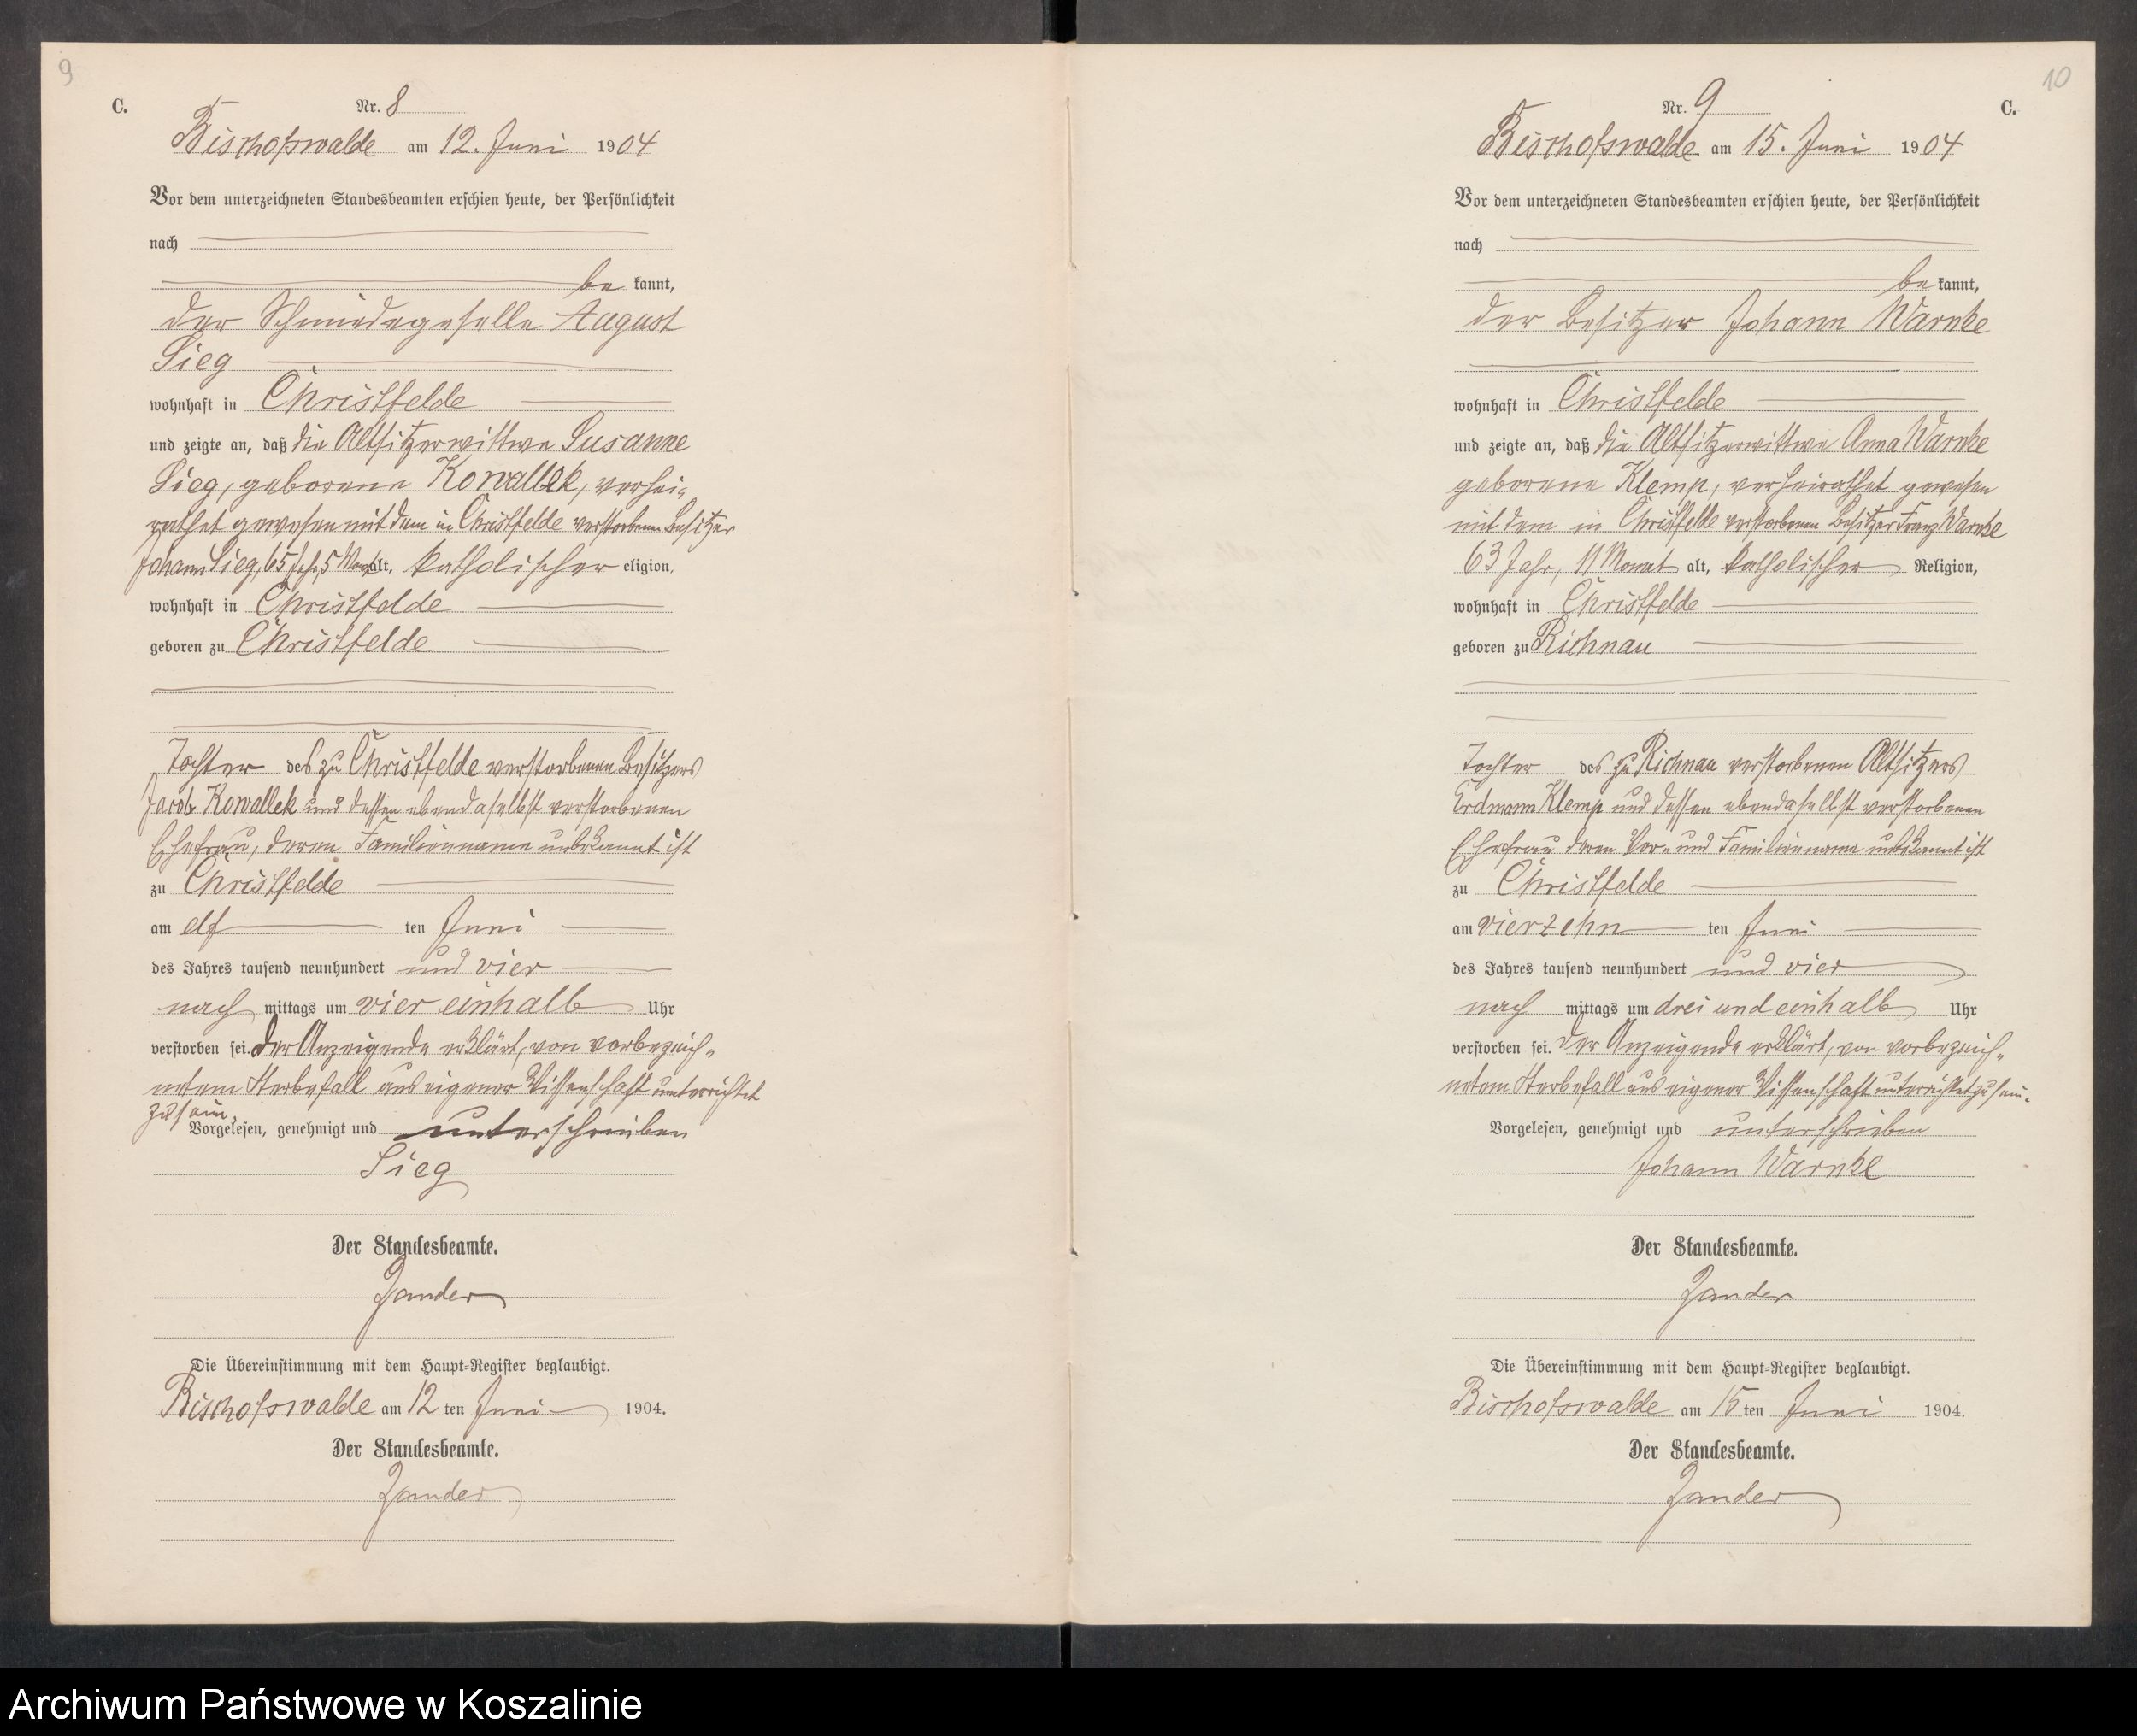 9
C.
Nr. 8
Bischofswalde am 12. Juni 1904
Vor dem unterzeichneten Standesbeamten erschien heute, der Persönlichkeit
nach
be kannt,
der Schmiedegeselle August
Sieg
wohnhaft in Christfelde
und zeigte an, daß die Altsitzerwittwe Susanne
Sieg, geborene Kowallek, verhei-
rathet gewesen mit dem in Christfelde verstorbenen Besitzer
Johann Sieg, 65 Jahr, 5 Monat alt, katholischer eligion,
wohnhaft in Christfelde
geboren zu Christfelde
Tochter des zu Christfelde verstorbenen Besitzers
Jacob Kowallek und dessen ebendaselbst verstorbenen
Ehefrau, deren Familienname unbekannt ist
zu Christfelde
am elf ten Juni
des Jahres tausend neunhundert und vier
nach mittags um vier einhalb Uhr
verstorben sei. Der Anzeigende erklärt, von vorbezeich-
netem Sterbefall aus eigener Wissenschaft unterrichtet
zu sein.
Vorgelesen, genehmigt und unterschrieben
Sieg
Der Standesbeamte.
Zander
Die Übereinstimmung mit dem Haupt-Register beglaubigt.
Bischofswalde am 12 ten Juni 1904.
Der Standesbeamte.
Zander
10
Nr. 9
C.
Bischofswalde am 15. Juni 1904
Vor dem unterzeichneten Standesbeamten erschien heute, der Persönlichkeit
nach
be kannt,
der Besitzer Johann Warnke
wohnhaft in Christfelde
und zeigte an, daß die Altsitzerwittwe Anna Warnke
geborene Klemp, verheirathet gewesen
mit dem in Christfelde verstorbenen Besitzer Franz Warnke
63 Jahr, 11 Monat alt, katholischer Religion,
wohnhaft in Christfelde
geboren zu Richnau
Tochter des zu Richnau verstorbenen Altsitzers
Erdmann Klemp und dessen ebendaselbst verstorbenen
Ehefrau deren Vor- und Familienname unbekannt ist
zu Christfelde
am vierzehn ten Juni
des Jahres tausend neunhundert und vier
nach mittags um drei und einhalb Uhr
verstorben sei. Der Anzeigende erklärt, von vorbezeich-
netem Sterbefall aus eigener Wissenschaft unterrichtet zu sein.
Vorgelesen, genehmigt und unterschrieben
Johann Warnke
Der Standesbeamte.
Zander
Die Übereinstimmung mit dem Haupt-Register beglaubigt.
Bischofswalde am 15 ten Juni 1904.
Der Standesbeamte.
Zander
Archiwum Państwowe w Koszalinie